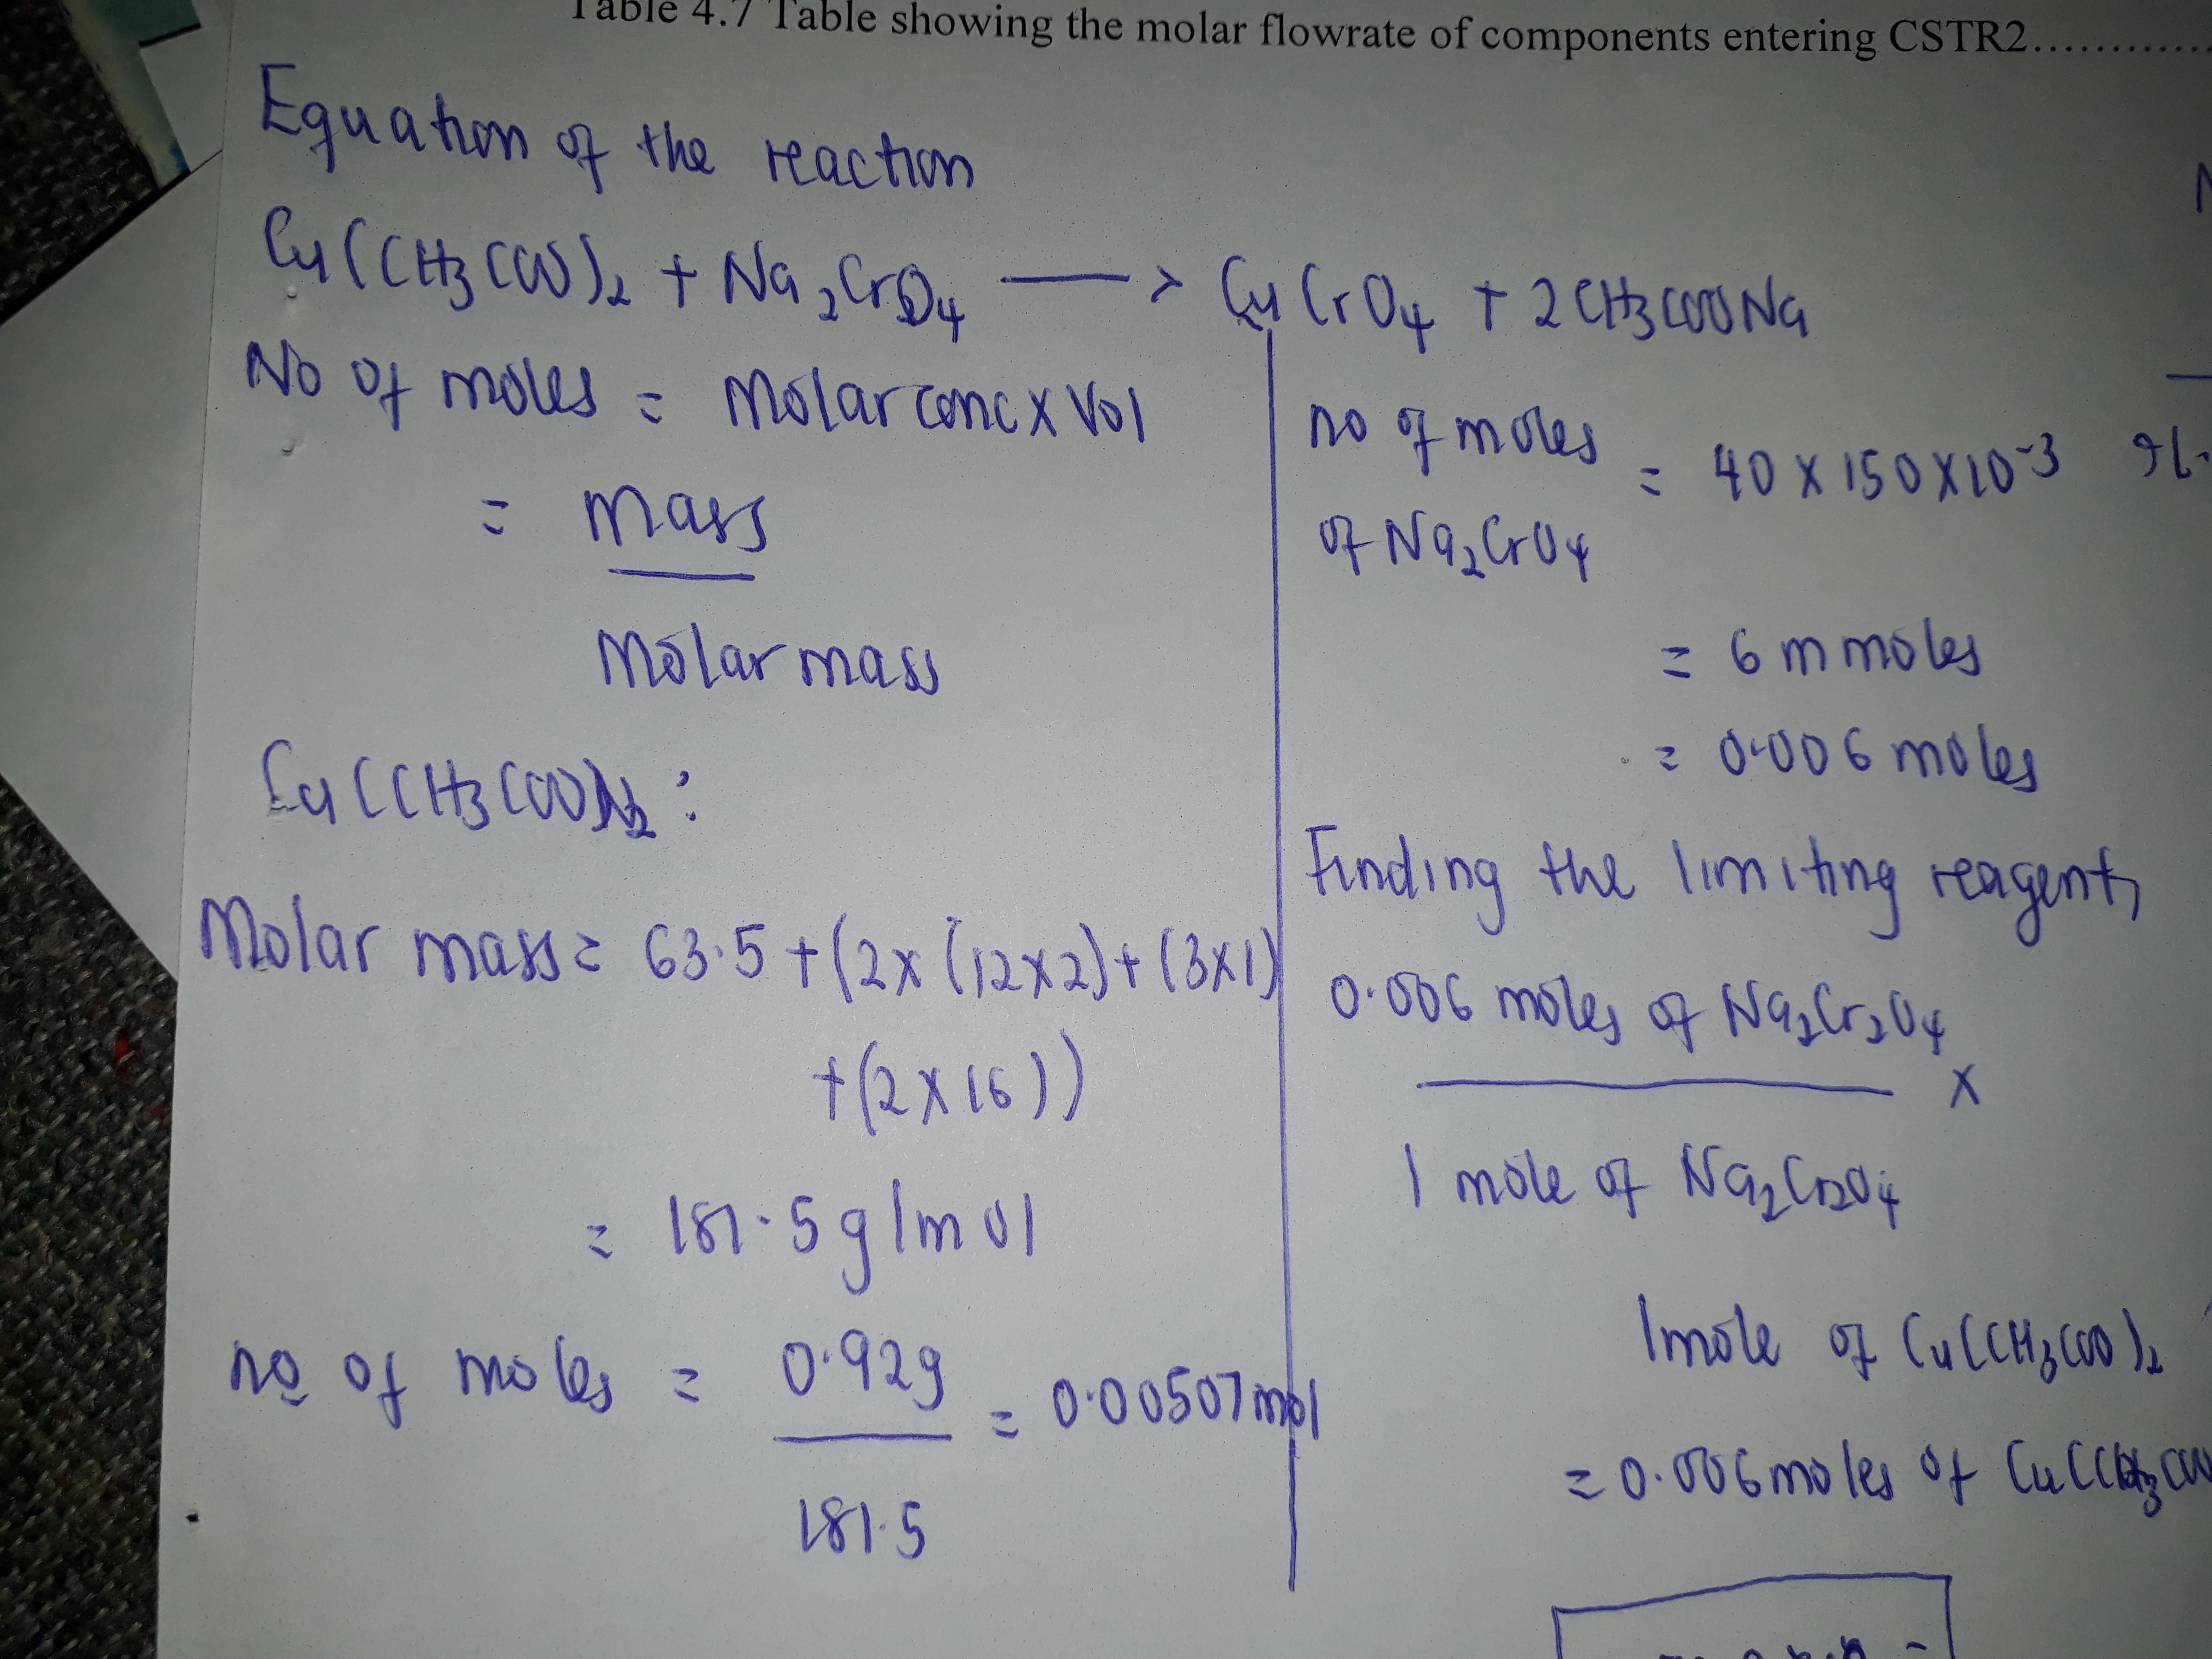 Table 4.7 Table showing the molar flowrate of components entering CSTR2............
Equation of the reaction
Cu(CH3COO)2 + Na2CrO4 —> CuCrO4 + 2CH3COONa
No of moles = Molar conc x Vol
= mass
Molar mass
Cu(CH3COO)2 :
Molar mass = 63.5 + (2x (12x2) + (3x1)
+ (2x16))
= 181.5 g/mol
no of moles = 0.92g = 0.00507 mol
181.5
no of moles
of Na2CrO4 = 40 x 150 x 10-3
= 6 m moles
= 0.006 moles
Finding the limiting reagent,
0.006 moles of Na2Cr2O4 x
1 mole of Na2Cr2O4
1mole of Cu(CH3COO)2
= 0.006 moles of Cu(CH3COO